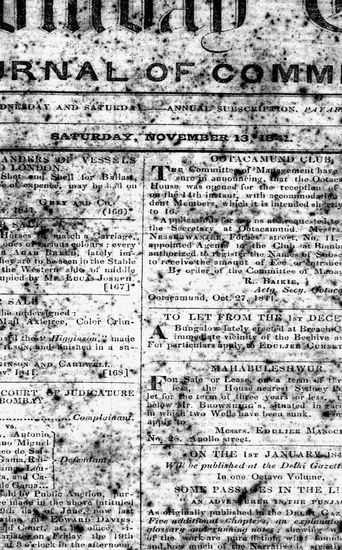 Bombay
JOURNAL OF COMME
DNESDAY AND SATURDAY.—ANNUAL SUBSCRIPTION, PAYAB
SATURDAY, NOVEMBER 13, 1841.
ANDERS OF VESSELS
LONDON.
Shot and Shell for Ballast,
of expence, may be had on
GREY and Co.
1841. (166)
Horses, a match a Carriage,
ones of various colours: every
a ARAB BREED, lately im-
hey are to be seen in the Stable
the Western side of middle
upied by Mr. LUCAS JOSEPH.
[167]
SALE
the undersigned:
Mail Axletree, Color Crim-
"Higginson," made
and finished in a su-
GINSON AND CARDWELL.
1841. [168]
COURT OF JUDICATURE
BOMBAY.
Complainant.
vs.
Antonio
Miguel
de Sal-
Gama,
Defendants.
old by Public Auction, pur-
made in the above intituled
9th day of June, now last
of EDWARD DAVIES,
Court, at his office, si-
on Friday the 19th
at 3 o'clock in the afternoon,
OOTACAMUND CLUB.
THE Committee of Management have
sure in announcing, that the Ootaca
House was opened for the reception
on the 14th instant, with accommodation
dent Members, which it is intended shortly
to 16.
Applications for are requested to
the Secretary, at Ootacamund. Messrs.
NESSERWANJEE, Forbes' street, No. 11,
appointed Agents of the Club at Bombay
authorized to register the Names of Subsc
to receive the amount of
By order of the Committee of Mana
R. BAIKIE,
Actg. Secy. Ootaca
Ootacamund, Oct. 27, 1841.
TO LET FROM THE 1ST DECE
A Bungalow lately erected at Breach C
immediate vicinity of the Beehive
For particulars apply, to EDULJEE CURSET
MAHABULESHWUR.
FOR Sale or Lease, for a term of thr
the House nearest Sydney Po
let for the term of three years or less,
below Mr. BROWNRIGG'S, situated in
in which two Wells have been sunk.
apply to
Messrs. EDULJEE MANOCK
No. 28, Apollo street.
ON THE 1ST JANUARY 184
Will be published at the Delhi Gazette
In one Octavo Volume,
SOME PASSAGES IN THE LI
AN ADVENTURER IN THE PUNJA
As originally published in the DELHI GAZ
Five additional Chapters, an explanato
glossary and running notes, showing
of the work are pure fiction, what found
and how much of the Narrative is